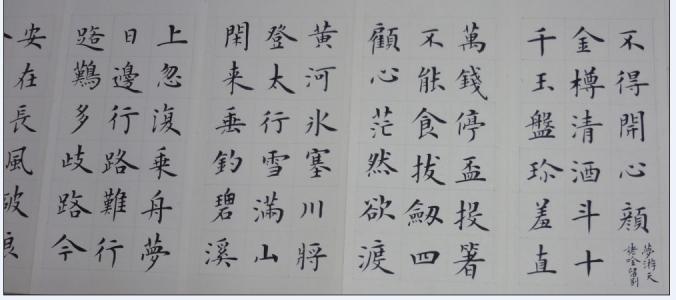 不得開心顔
夢游天
姥吟留别
金樽清酒斗十
千玉盤珎羞直
萬錢停盃投箸
不能食拔劒四
顧心茫然欲渡
黄河氷塞川將
登太行雪滿山
閑来垂釣碧溪
上忽復乘舟夢
日邊行路難行
路難多歧路今
安在長風破浪